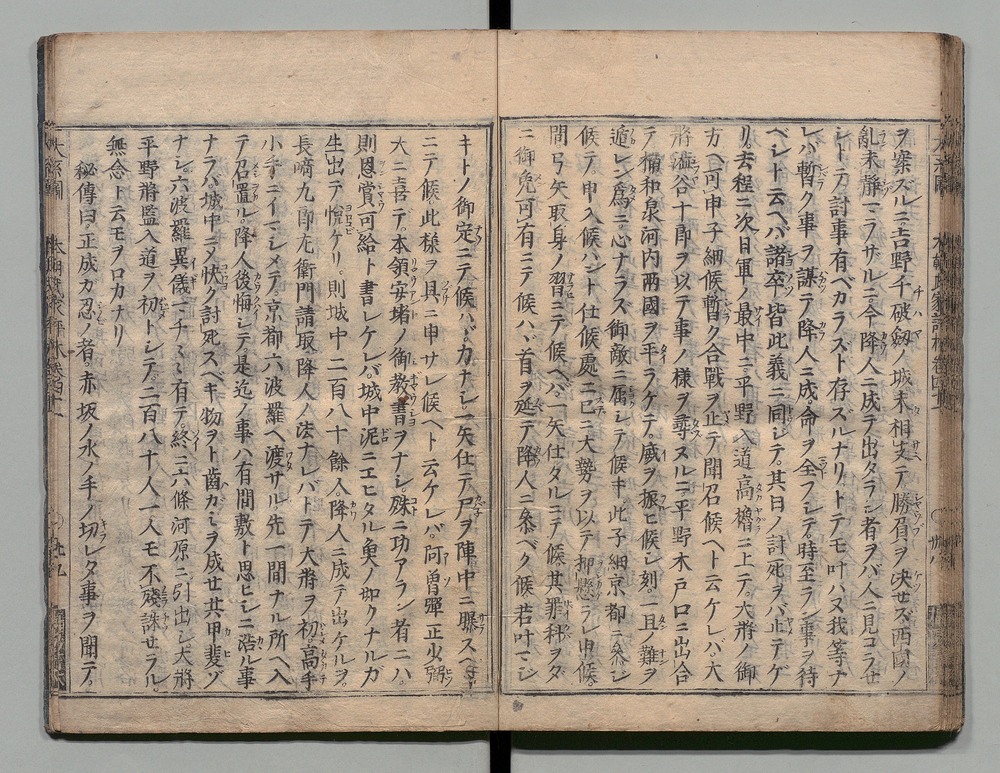 ヲ案ズルニ吉野千破劔ノ城未相支テ勝負ヲ决せズ西國ノ
乱未静マラサルニ今降人ニ成テ出タラン者ヲバ人ニ見コラせ
レトテ討事有ベカラズト存ズルナリトテモ叶ハヌ我等ナ
レバ暫ク事ヲ謀テ降人ニ成命ヲ全フシテ時至ラン事ヲ待
ベシト云ヘバ諸卒皆此義ニ同シテ其日ノ討死ヲバ止テゲ
リ去程ニ次日軍ノ最中ニ平野入道高櫓ニ上テ大將ノ御
方ヘ可申子細候暫ク合戰ヲ止テ聞召候ヘト云ケレバ大
將澁谷十郎ヲ以テ事ノ様ヲ尋ヌルニ平野木戸口ニ出合
テ楠和泉河内兩國ヲ平ラケテ威ヲ振ヒ候シ刻一旦ノ難ヲ
遁レン爲ニ心ナラズ御敵ニ属シテ候キ此子細京都ニ参シ
候テ申入候ハント仕候處ニ已ニ大勢ヲ以テ押懸ラレ申候
間弓矢取身ノ習ニテ候ヘバ一矢仕タルニテ候其罪科ヲダ
ニ御免可有ニテ候ハヾ首ヲ延テ降人ニ参ベク候若叶マシ
キトノ御定ニテ候ハヾカナシ一矢仕テ尸ヲ陣中ニ曝スベキ
ニテ候此様ヲ具ニ申サレ候ヘト云ケレバ阿曽彈正少弼
大ニ喜テ本領安堵ノ御教書ヲナシ殊ニ功アラン者ニハ
則恩賞可給ト書レケレバ城中泥ニエヒタル魚ノ如クナルガ
生出テ恱ケリ則城中二百八十餘人降人ニ成テ出ケルヲ
長﨑九郎左衛門請取降人ノ法ナレバトテ大將ヲ初高手
小手ニイマシメテ京都六波羅ヘ渡サル先一間ナル所ヘ入
テ召置ル降人後悔シテ是迄ノ事ハ有間敷ト思ヒシニ沿ル事
ナラバ城中ニテ快ク討死スベキ物ヲト齒ガミヲ成せ共甲斐ゾ
ナシ六波羅異儀マチ〱有テ終ニ六條河原ニ引出シ大將
平野將監入道ヲ初トシテ二百八十人一人モ不殘誅せラル
無念ト云モヲロカナリ
秘傳曰正成カ忍ノ者赤坂ノ水ノ手ノ切レタ事ヲ聞テ